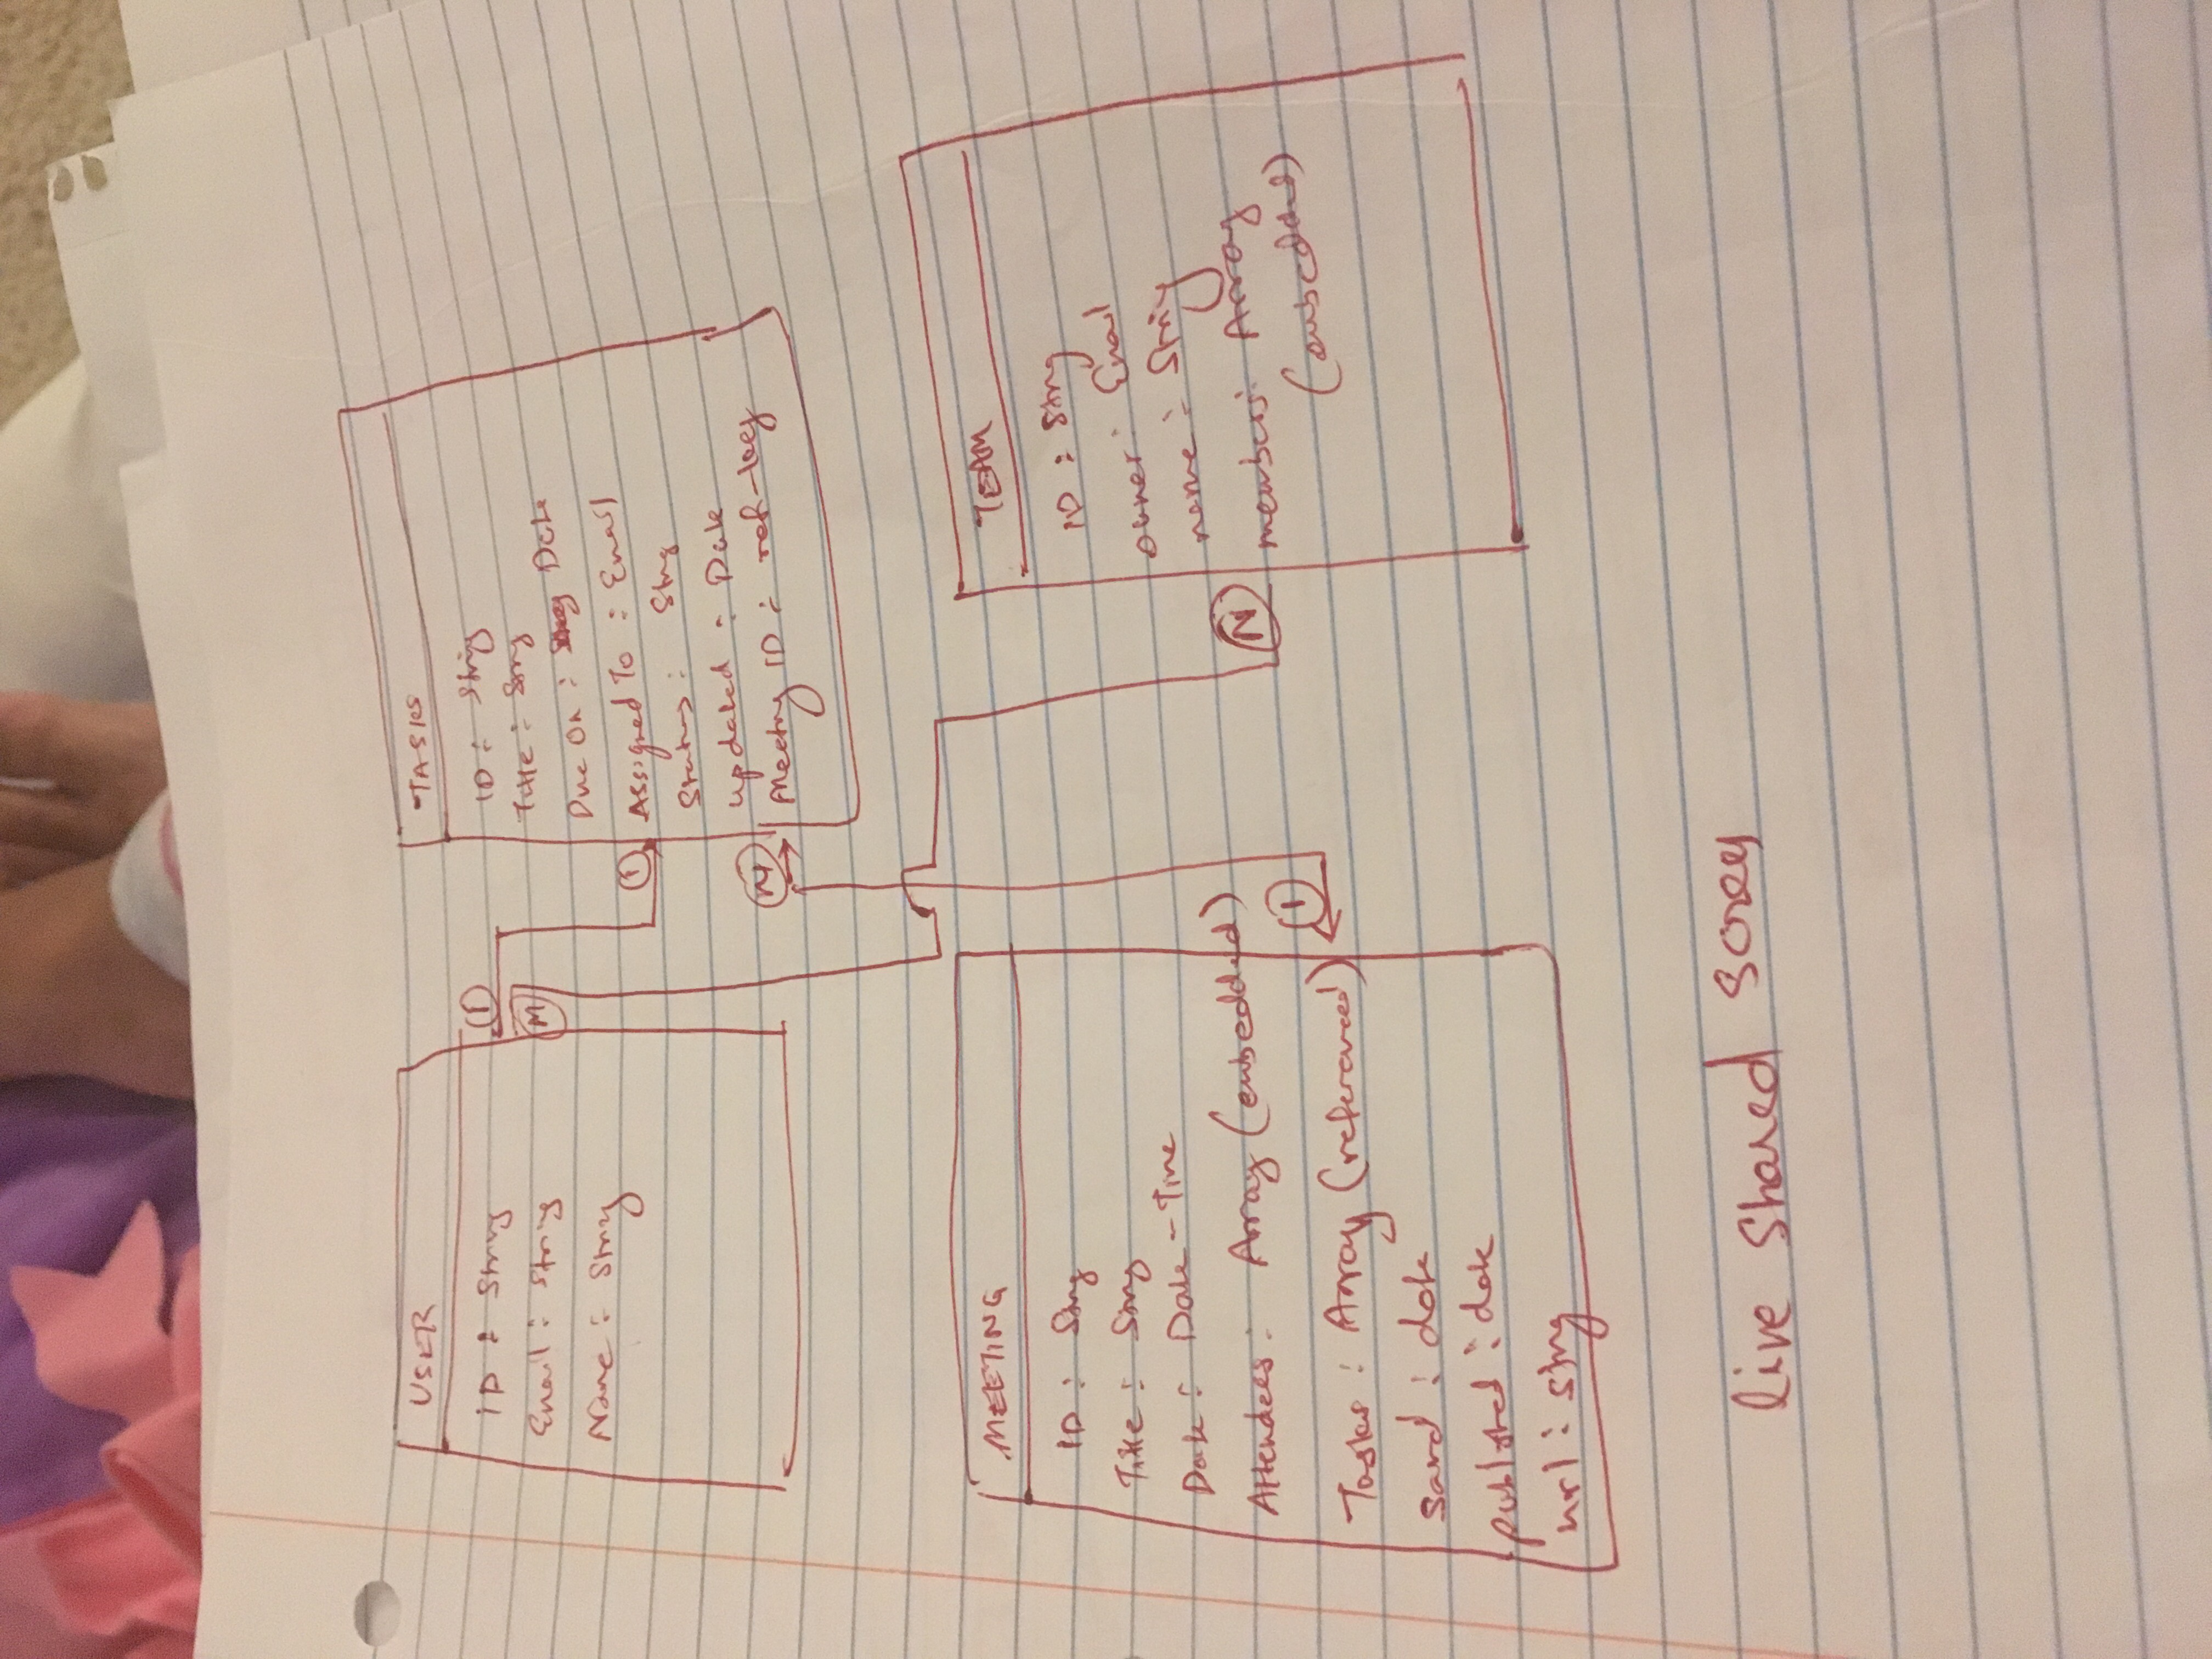 USER
ID : String
Email : String
Name : String
1
M
TASKS
ID : String
Title : String
Due On : Date
Assigned To : Email
Status : String
updated : Date
Meeting ID : ref-key
1
MEETING
ID : String
Title : String
Date : Date-Time
Attendees : Array (embedded)
Tasks : Array (referenced)
saved : date
published : date
url : string
1
TEAM
ID : String
owner : Email
name : String
members : Array
(embedded)
N
live shared